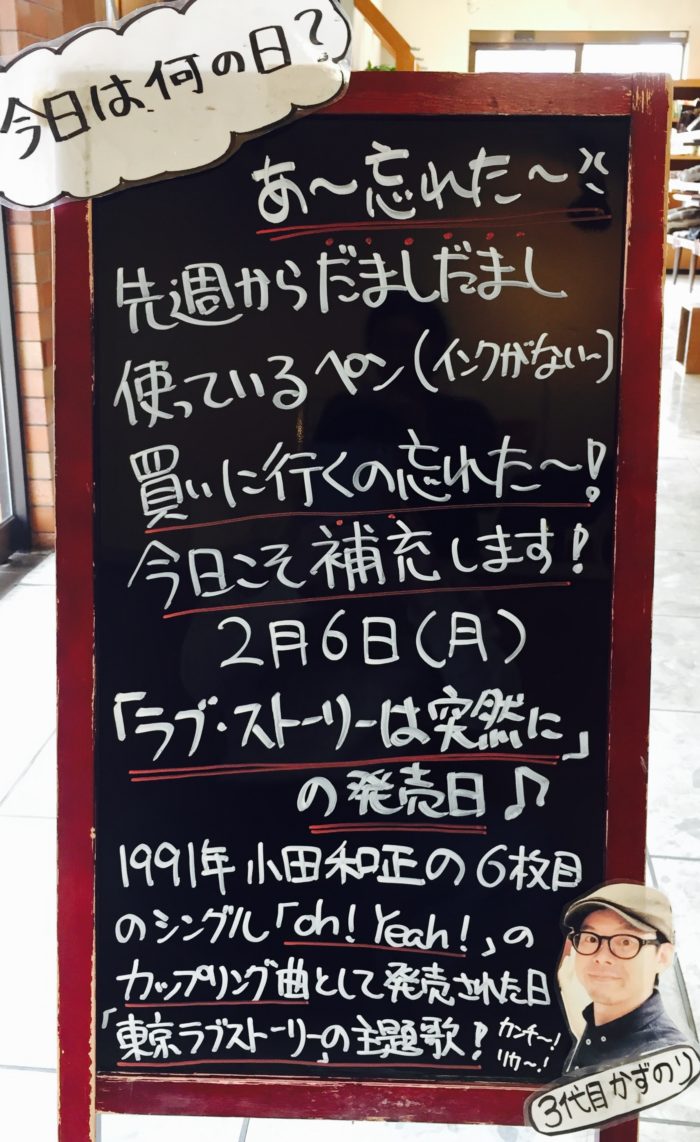 今日は何の日?
あ〜忘れた〜
先週からだましだまし
使っているペン(インクがない〜)
買いに行くの忘れた〜!
今日こそ補充します!
2月6日(月)
「ラブ・ストーリーは突然に」
の発売日♪
1991年小田和正の6枚目
のシングル「oh! Yeah!」の
カップリング曲として発売された日
「東京ラブストーリー」の主題歌!
カンチ〜!
リカ〜!
3代目かずのり